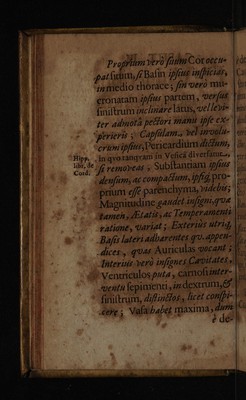 Proprium verò suum Cor occu-
pat situm, si Basin ipsius inspicias,
in medio thorace; sin verò mu-
cronatam ipsius partem, versus
sinistrum inclinare latus, vel levi-
ter admotâ pectori manu ipse ex-
perieris: Capsulam, vel involu-
crum ipsius, Pericardium dictum,
Hipp. lib. de Cord.
in quo tanquam in Vesica
si removeas, Substantiam ipsius
densam, ac compactam, ipsiq; pro-
prium esse parenchyma, videbis;
Magnitudine gaudet insigni, quæ
tamen, Ætatis, ac Temperamenti
ratione, variat; Exterius utriq;
Basis lateri adhærentes qu. appen-
dices, quas Auriculas vocant;
Interius verò insignes Cavitates,
Ventriculos puta, carnosi inter-
ventu sepimenti, in dextrum, &
sinistrum, distinctos, licet conspi-
cere; Vasa habet maxima, dum
è de-